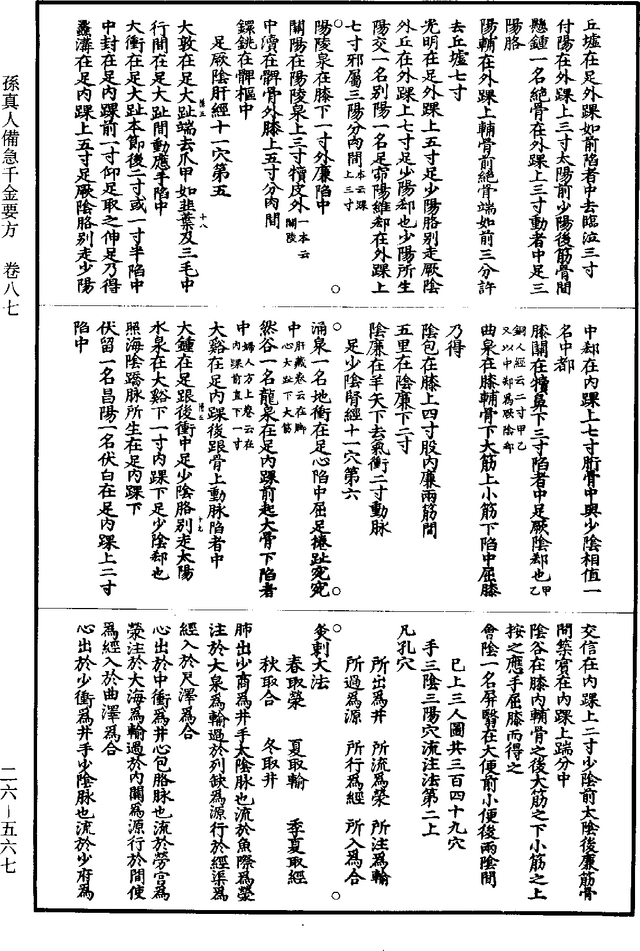 孫真人備急千金要方 卷八七
二六－五六七
丘墟在足外踝如前陷者中去臨泣三寸
付陽在外踝上三寸太陽前少陽後筋骨間
懸鍾一名絶骨在外踝上三寸動者中足三
陽胳
陽輔在外踝上輔骨前絶骨端如前三分許
去丘墟七寸
光明在足外踝上五寸足少陽胳別走厥陰
外丘在外踝上七寸足少陽郄也少陽所生
陽交一名別陽一名足窌陽維郄在外踝上
七寸邪屬三陽分肉間本云踝上三寸
陽陵泉在膝下一寸外廉陷中
關陽在陽陵泉上三寸犢皮外一本云關陵
中瀆在髀骨外膝上五寸分肉間
鐶銚在髀樞中
足厥陰肝經十一穴第五
大敦在足大趾端去爪甲如韭葉及三毛中
行間在足大趾間動應手陷中
大衝在足大趾本節後二寸或一寸半陷中
中封在足內踝前一寸仰足取之伸足乃得
蠡溝在足內踝上五寸足厥陰胳別走少陽
中郄在內踝上七寸胻骨中與少陰相值一
名中都
膝關在犢鼻下三寸陷者中足厥陰郄也甲乙
銅人經云二寸甲乙又以中郄爲厥陰郄
曲泉在膝輔骨下大筋上小筋下陷中屈膝
乃得
陰包在膝上四寸股內廉兩筋間
五里在陰廉下二寸
陰廉在羊矢下去氣衝二寸動脉
足少陰腎經十一穴第六
涌泉一名地衝在足心陷中屈足捲趾宛宛
中肝藏卷云在脚心大趾下大筋
然谷一名龍泉在足內踝前起大骨下陷者
中婦人方上卷云在內踝前直下一寸
大谿在足內踝後跟骨上動脉陷者中
大鍾在足跟後衝中足少陰胳別走太陽
水泉在大谿下一寸內踝下足少陰郄也
照海陰蹻脉所生在足內踝下
伏留一名昌陽一名伏白在足內踝上二寸
陷中
交信在內踝上二寸少陰前太陰後廉筋骨
間築賓在內踝上踹分中
陰谷在膝內輔骨之後大筋之下小筋之上
按之應手屈膝而得之
會陰一名屏翳在大便前小便後兩陰間
已上三人圖共三百四十九穴
手三陰三陽穴流注法第二上
凡孔穴
所出爲井 所流爲滎 所注爲輸
所過爲源 所行爲經 所入爲合
灸刺大法
春取滎 夏取輸 季夏取經
秋取合 冬取井
肺出少商爲井手太陰脉也流於魚際爲滎
注於大泉爲輸過於列缺爲源行於經渠爲
經入於尺澤爲合
心出於中衝爲井心包胳脉也流於勞宫爲
滎注於大海爲輸過於內關爲源行於間使
爲經入於曲澤爲合
心出於少衝爲井手少陰脉也流於少府爲